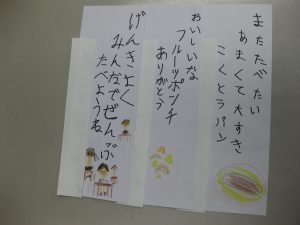 またたべたい
あまくて大すき
こくとうパン
おいしいな
フルーツポンチ
ありがとう
げんきよく
みんなでぜんぶ
たべようね